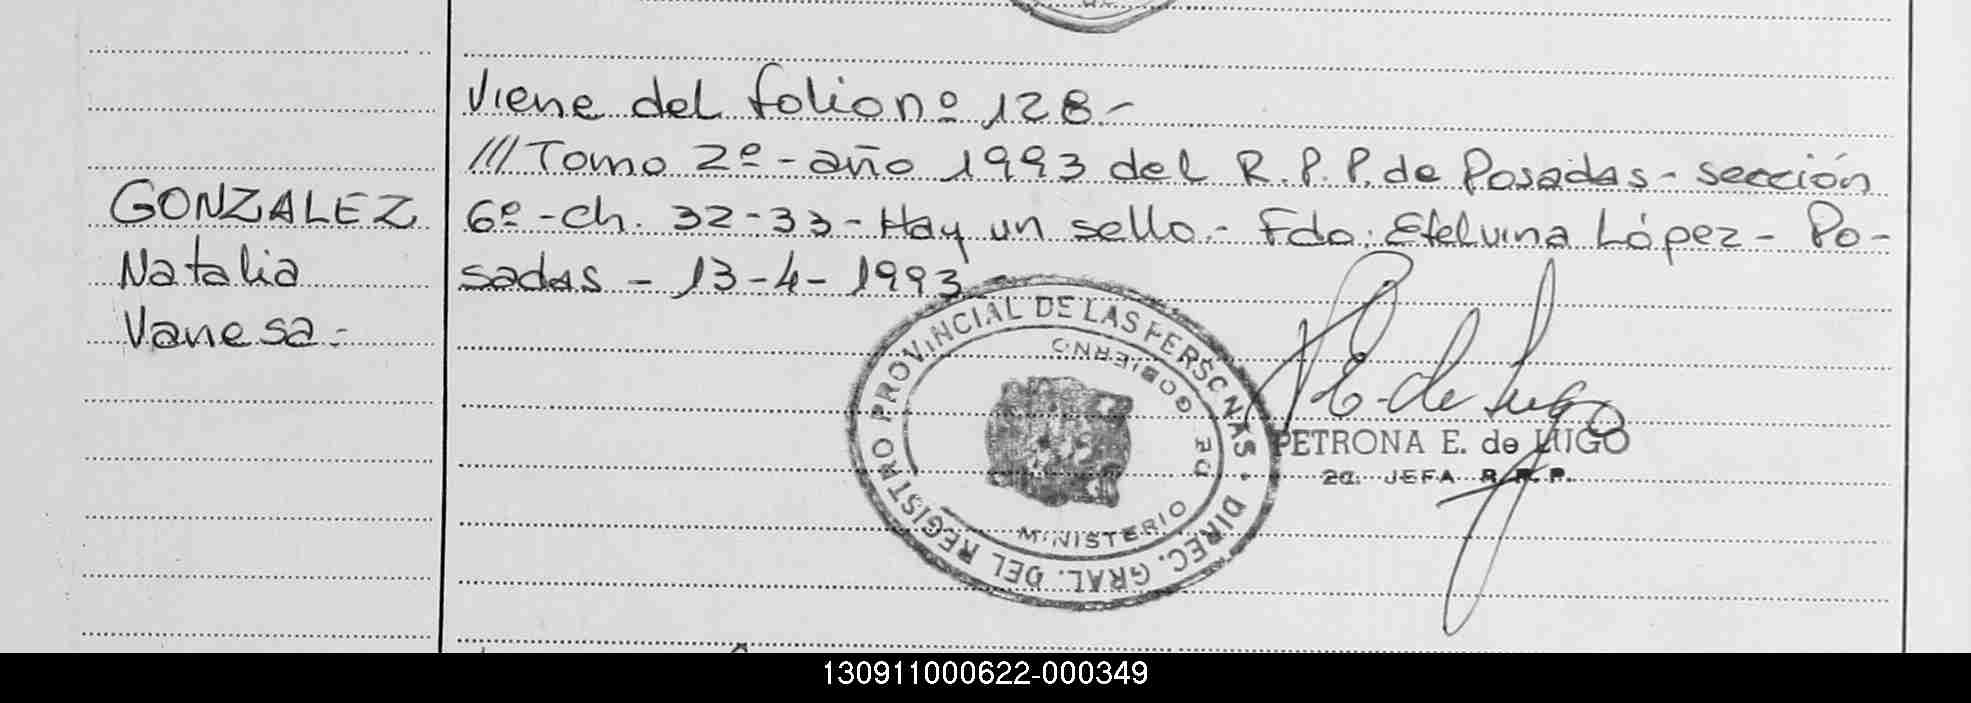 Viene del folio nº 128.-
///Tomo 2º - año 1993 del R.P.P. de Posadas - sección
GONZALEZ
6º - Ch. 32-33 - Hay un sello.- Fdo: Etelvina López - Po-
Natalia
sadas - 13-4-1993
Vanesa.-
DIREC. GRAL. DEL REGISTRO PROVINCIAL DE LAS PERSONAS
MINISTERIO DE GOBIERNO
P E. de Lugo
PETRONA E. de LUGO
2a. JEFA R.P.P.
130911000622-000349